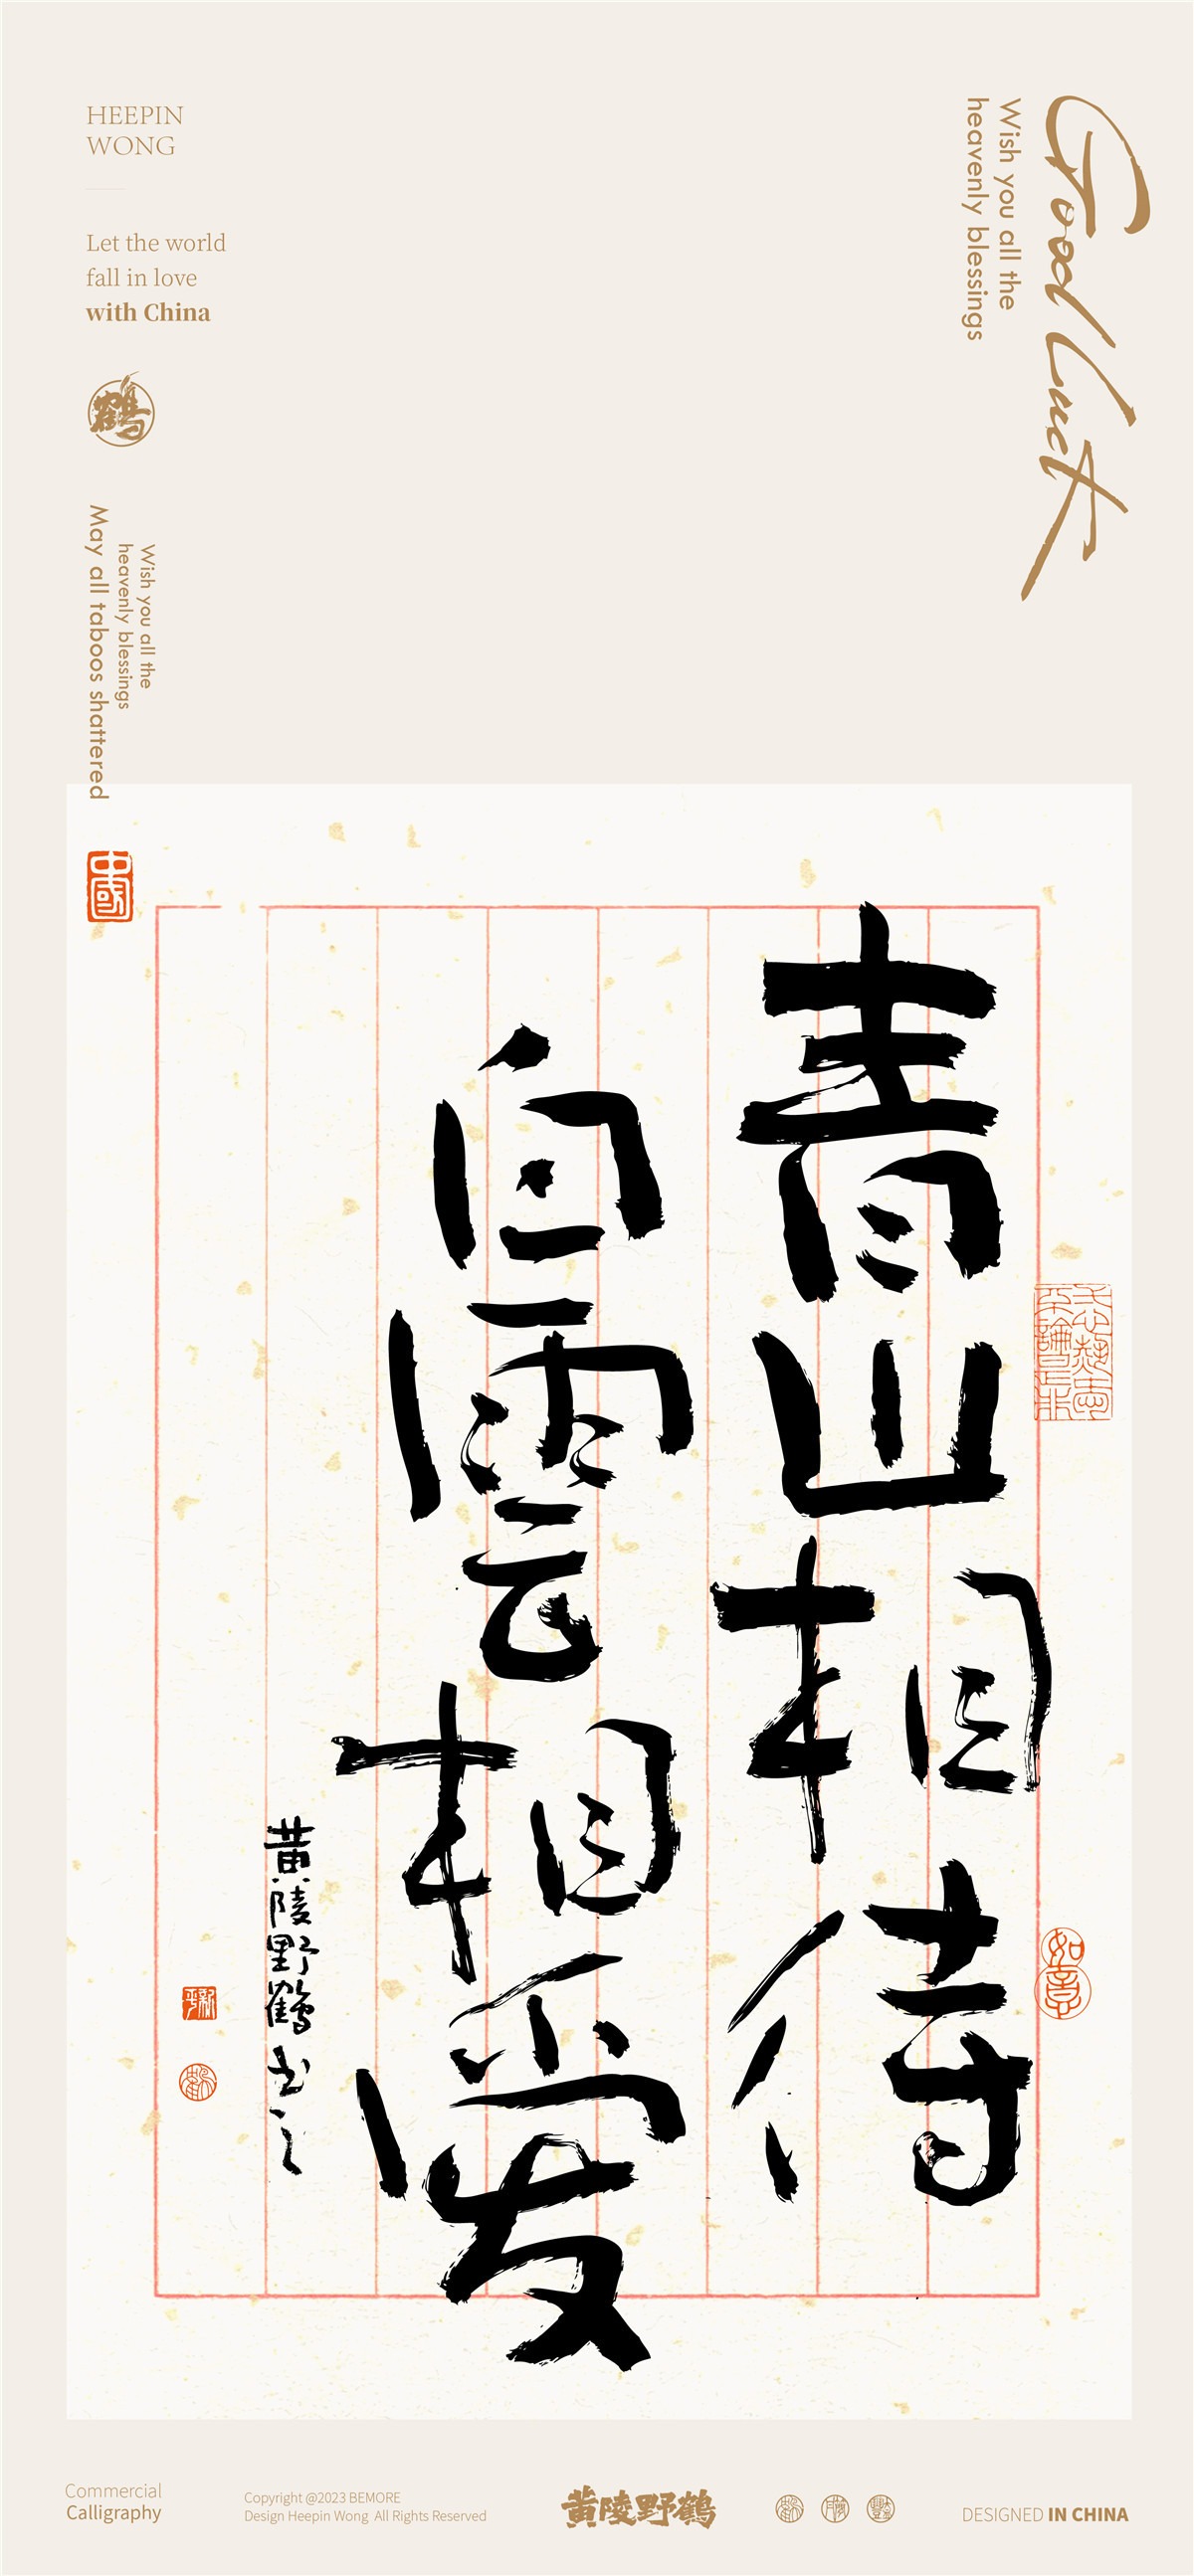 HEEPIN
WONG
Let the world
fall in love
with China
鶴
Wish you all the
heavenly blessings
May all taboos shattered
中國
Good luck
Wish you all the
heavenly blessings
青山相待
白雲相愛
黄陵野鶴书之
如意
Commercial
Calligraphy
Copyright @2023 BEMORE
Design Heepin Wong All Rights Reserved
黄陵野鶴
DESIGNED IN CHINA